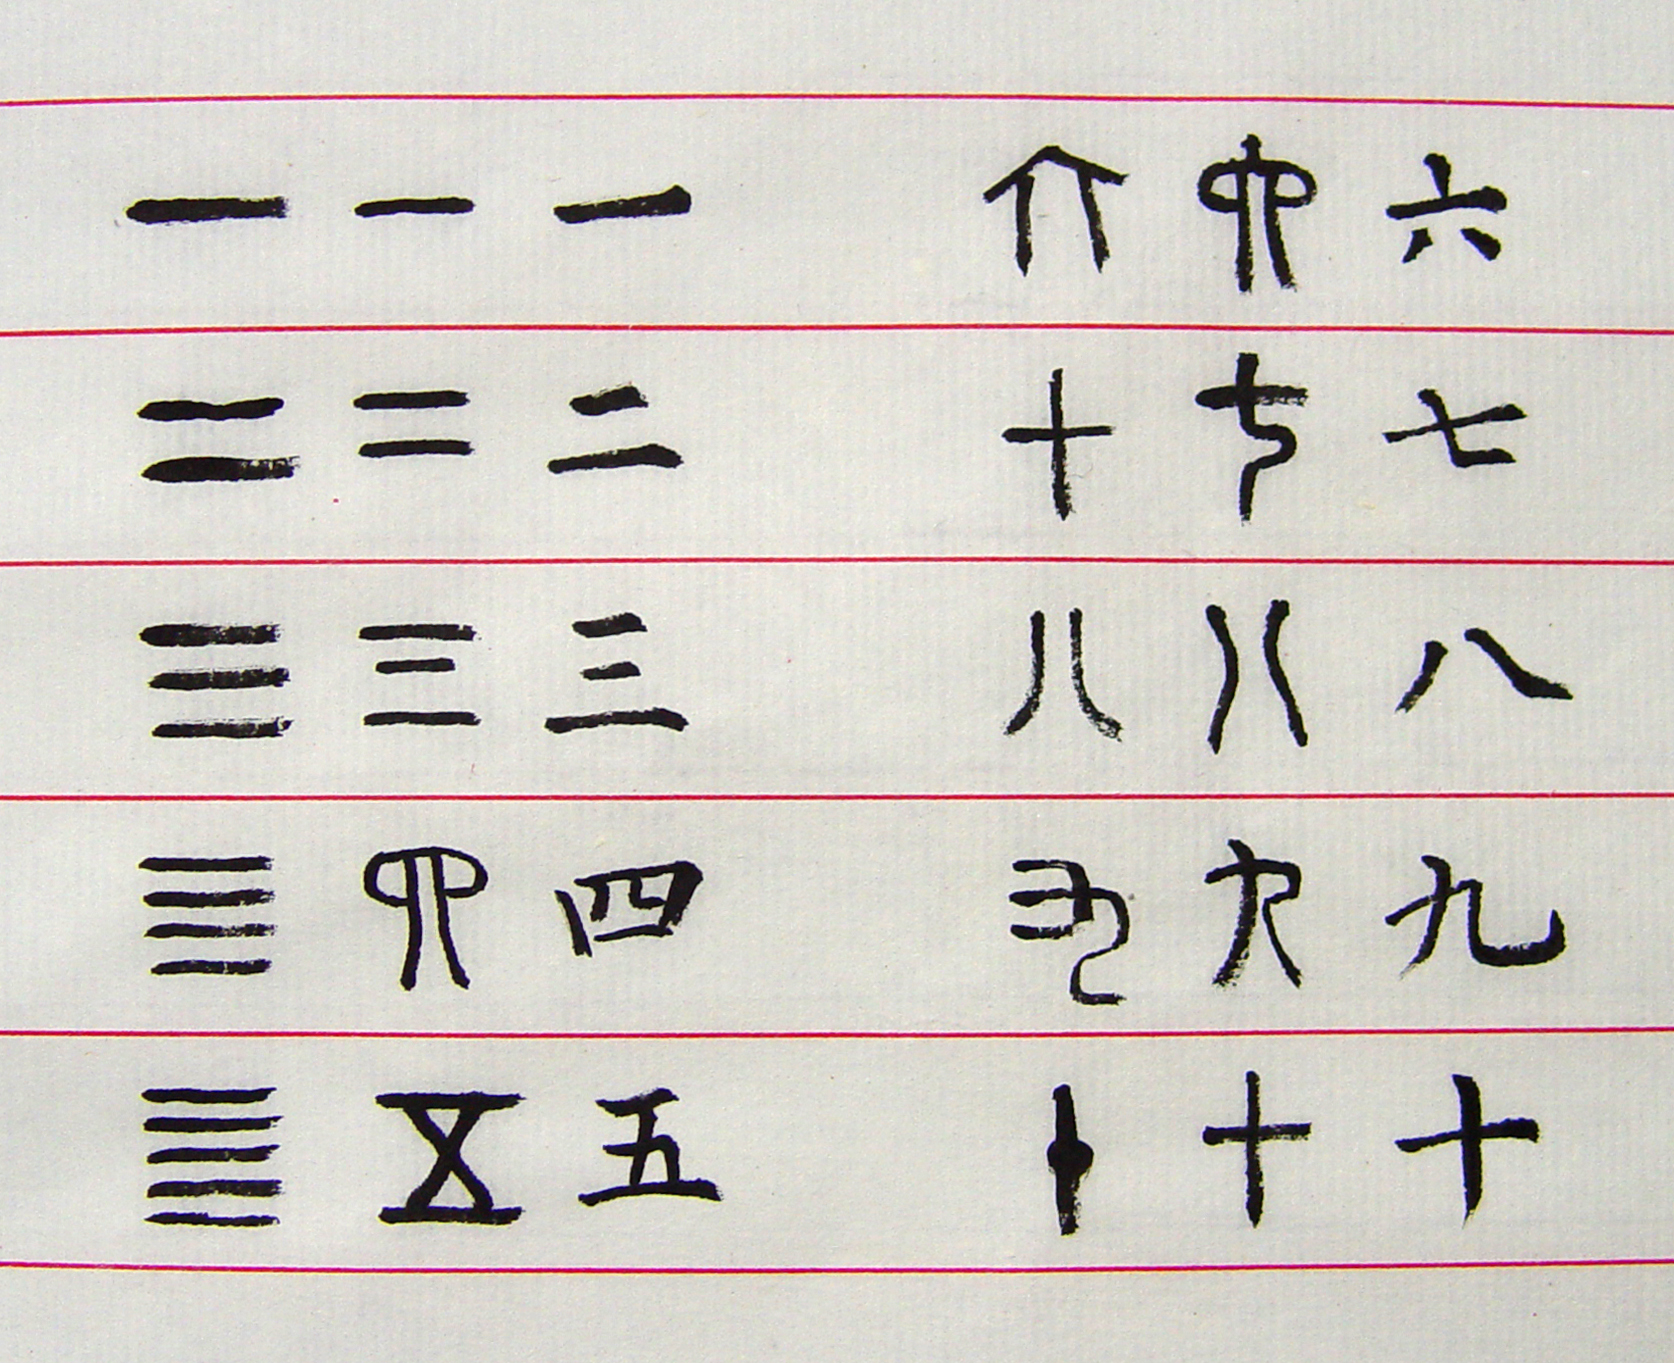 一 一 一 六 六 六
二 二 二 七 七 七
三 三 三 八 八 八
亖 四 四 九 九 九
五 五 五 十 十 十